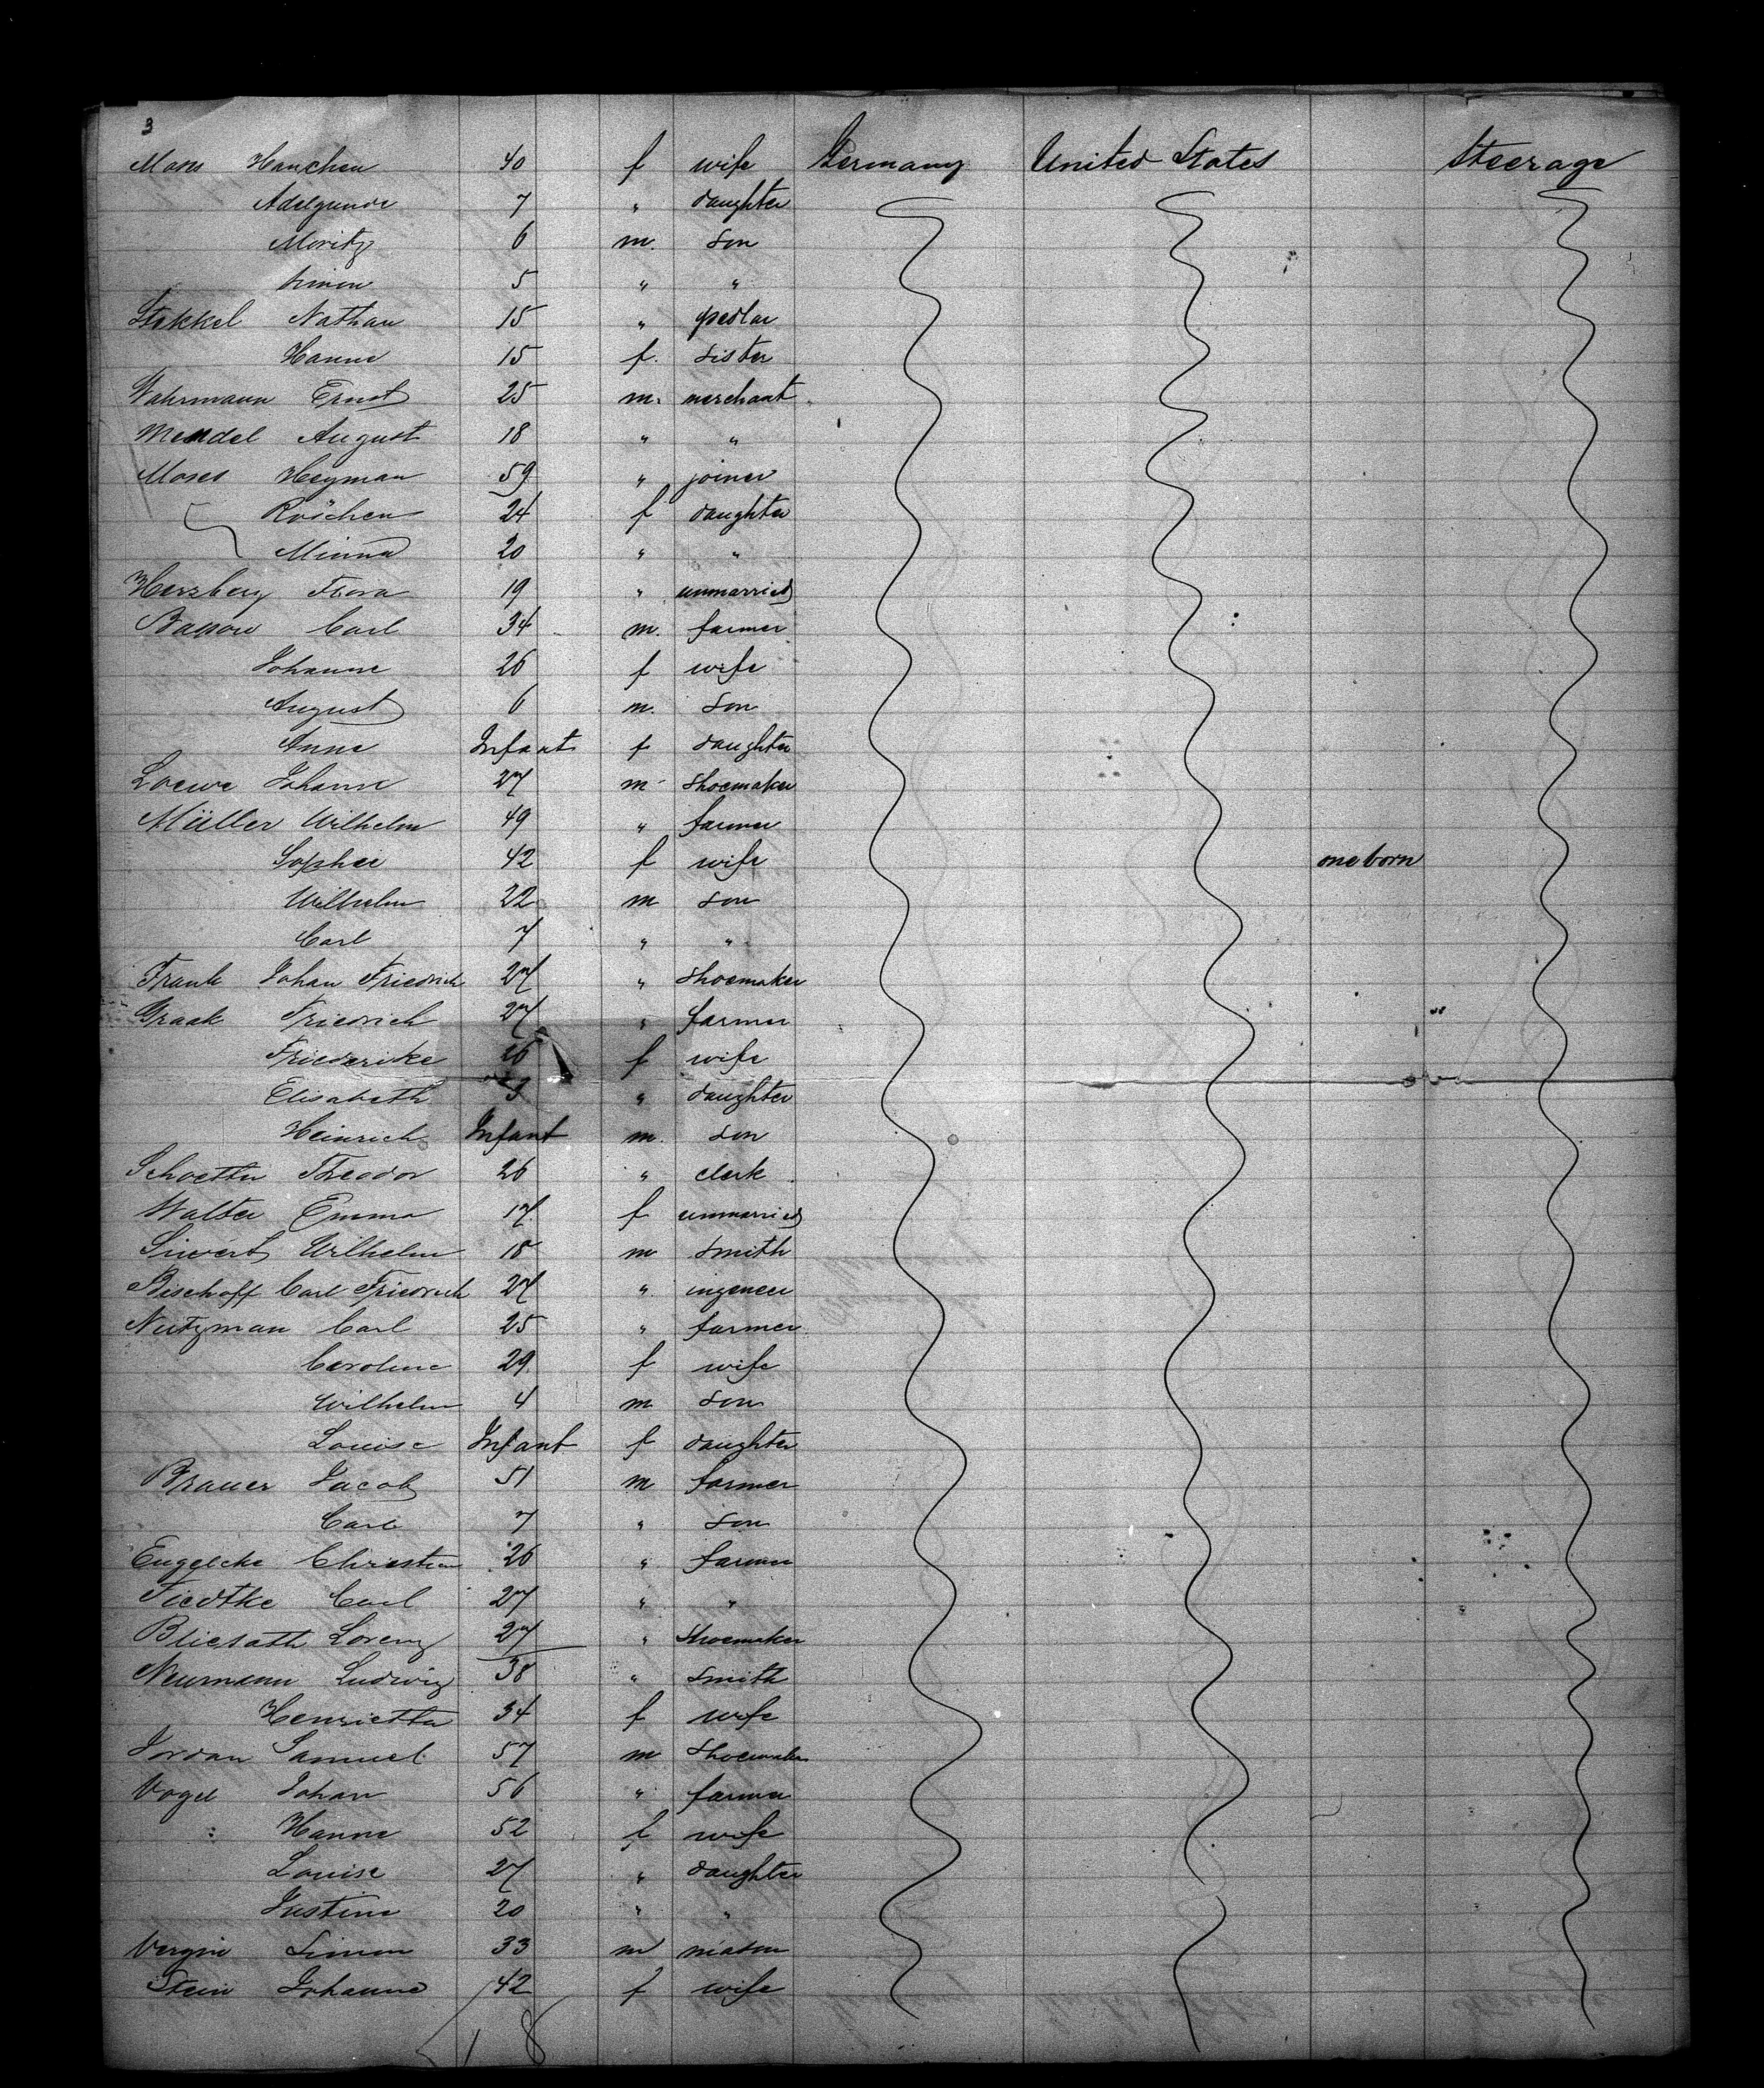 3
Moses Hanchen 40 f wife Germany United States Steerage
Adelgunde 7 " daughter
Moritz 6 m. son
Simon 5 " "
Stokkel Nathan 15 " pedlar
Hanne 15 f. sister
Wahrmann Ernst 25 m. merchant
Mendel August 18 " "
Moses Heyman 59 " joiner
Röschen 24 f daughter
Minna 20 " "
Herzberg Flora 19 " unmarried
Bassow Carl 34 m. farmer
Johanne 26 f wife
August 6 m. son
Anne Infant f daughter
Loewe Johann 27 m shoemaker
Müller Wilhelm 49 " farmer
Sophie 42 f wife one born
Wilhelm 22 m son
Carl 7 " "
Frank Johan Friedrich 27 " shoemaker
Graak Friedrich 27 " farmer
Friederike 26 f wife
Elisabeth 3 " daughter
Heinrich Infant m. son
Schoettu Theodor 26 " clerk
Walter Emma 17 f unmarried
Siwert Wilhelm 18 m smith
Bischoff Carl Friedrich 27 " ingeneer
Nutzman Carl 25 " farmer
Caroline 29 f wife
Wilhelm 4 m son
Louise Infant f daughter
Brauer Jacob 51 m farmer
Carl 7 " son
Engelcke Christian 26 " farmer
Tiedtke Carl 27 " "
Bliesath Lorenz 27 " shoemaker
Neumann Ludwig 38 " smith
Henrietta 34 f wife
Jordan Samuel 57 m shoemaker
Vogel Johan 56 " farmer
Hanne 52 f wife
Louise 27 " daughter
Justine 20 " "
Vergin Simon 33 m mason
Stein Johanne 42 f wife